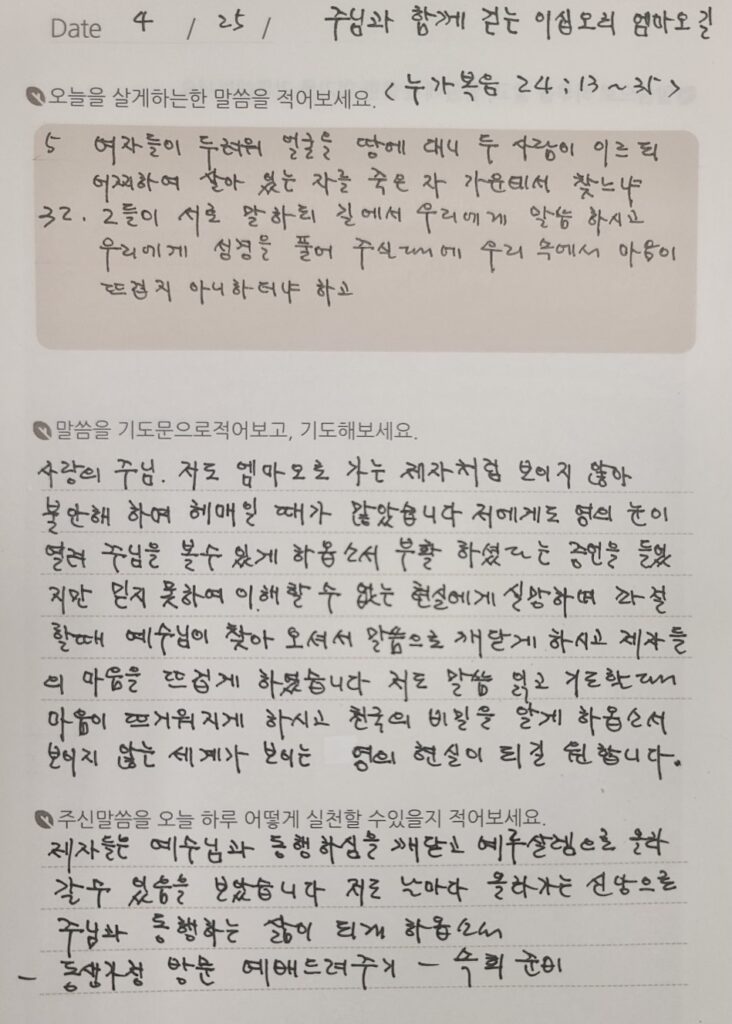 Date 4 / 25 / 주님과 함께 걷는 이십오리 엠마오길
오늘을 살게하는한 말씀을 적어보세요. <누가복음 24:13~35>
5 여자들이 두려워 얼굴을 땅에 대니 두 사람이 이르되
어찌하여 살아 있는 자를 죽은 자 가운데서 찾느냐
32. 그들이 서로 말하되 길에서 우리에게 말씀 하시고
우리에게 성경을 풀어 주실때에 우리 속에서 마음이
뜨겁지 아니하더냐 하고
말씀을 기도문으로적어보고, 기도해보세요.
사랑의 주님. 저도 엠마오로 가는 제자처럼 보이지 않아
불안해 하여 헤매일 때가 많았습니다 저에게도 영의 눈이
열려 주님을 볼수 있게 하옵소서 부활 하셨다는 증언을 들었
지만 믿지 못하여 이해할 수 없는 현실에게 실망하며 좌절
할때 예수님이 찾아 오셔서 말씀으로 깨닫게 하시고 제자들
의 마음을 뜨겁게 하였습니다 저도 말씀 읽고 기도할때
마음이 뜨거워지게 하시고 천국의 비밀을 알게 하옵소서
보이지 않는 세계가 보이는 영의 현실이 되길 원합니다.
주신말씀을 오늘 하루 어떻게 실천할 수있을지 적어보세요.
제자들은 예수님과 동행하심을 깨닫고 예루살렘으로 올라
갈수 있음을 보았습니다 저도 날마다 올라가는 신앙으로
주님과 동행하는 삶이 되게 하옵소서
- 동생가정 방문 예배드려주기 - 속회 준비